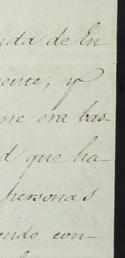 nda de En
mente, y
me era bas-
d que ha-
personas
endo con-